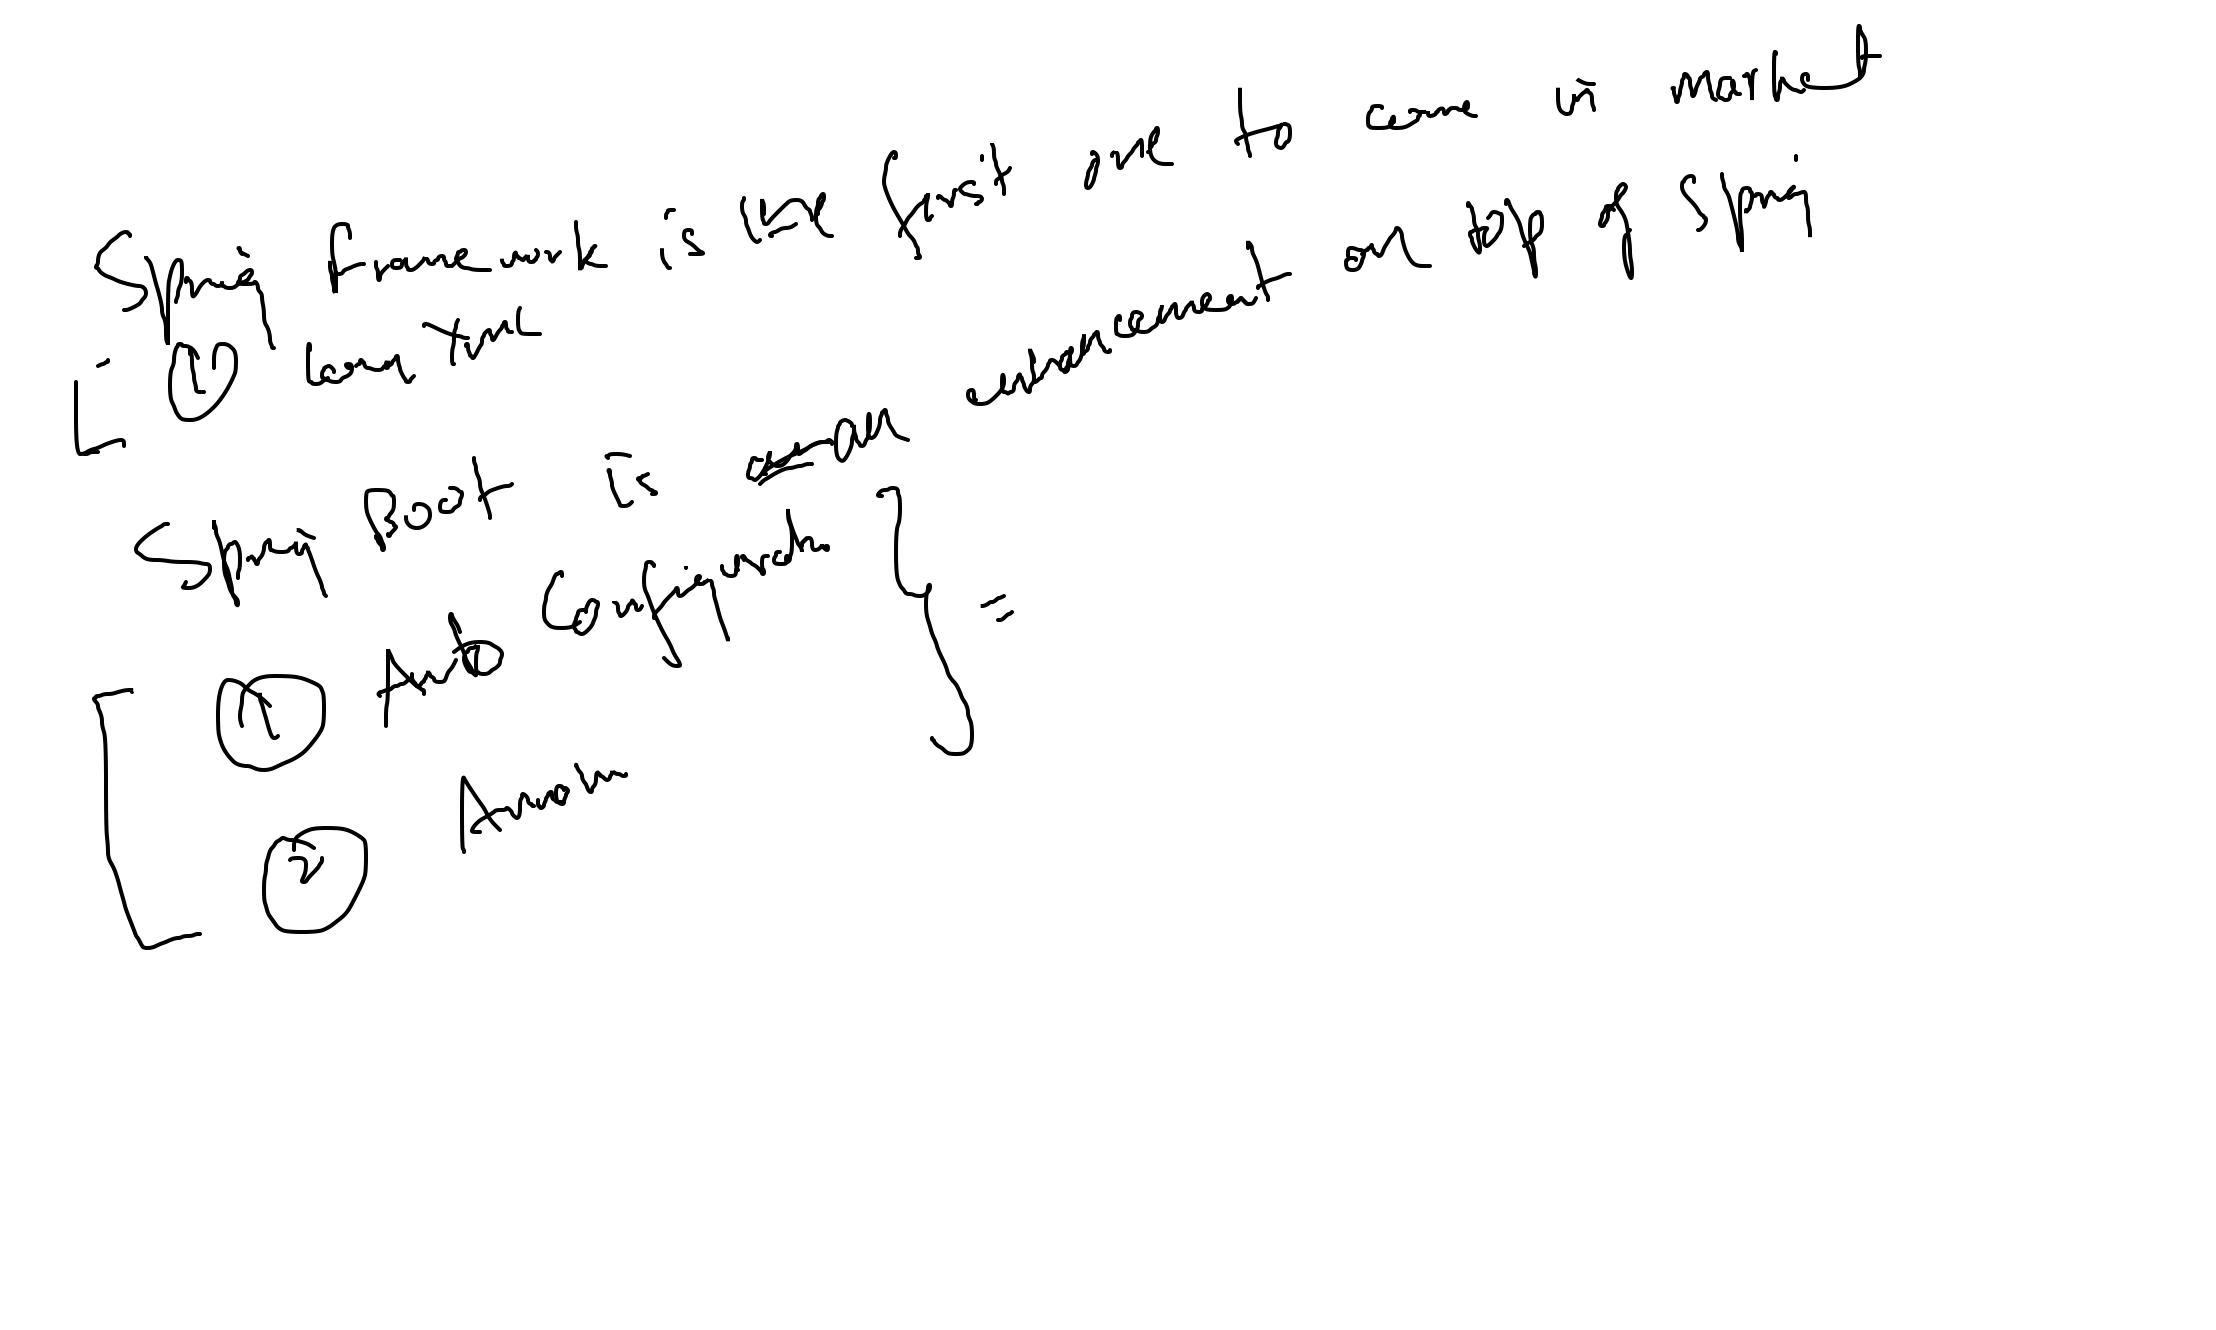 Spring framework is the first one to come in market
① XML
Spring Boot is an enhancement on top of Spring
① Auto Configuratn } =
②